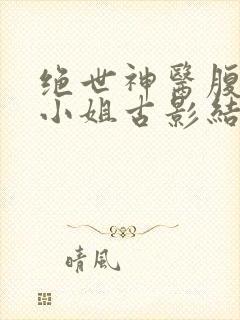 绝世神醫腹
小姐古影結
晴風